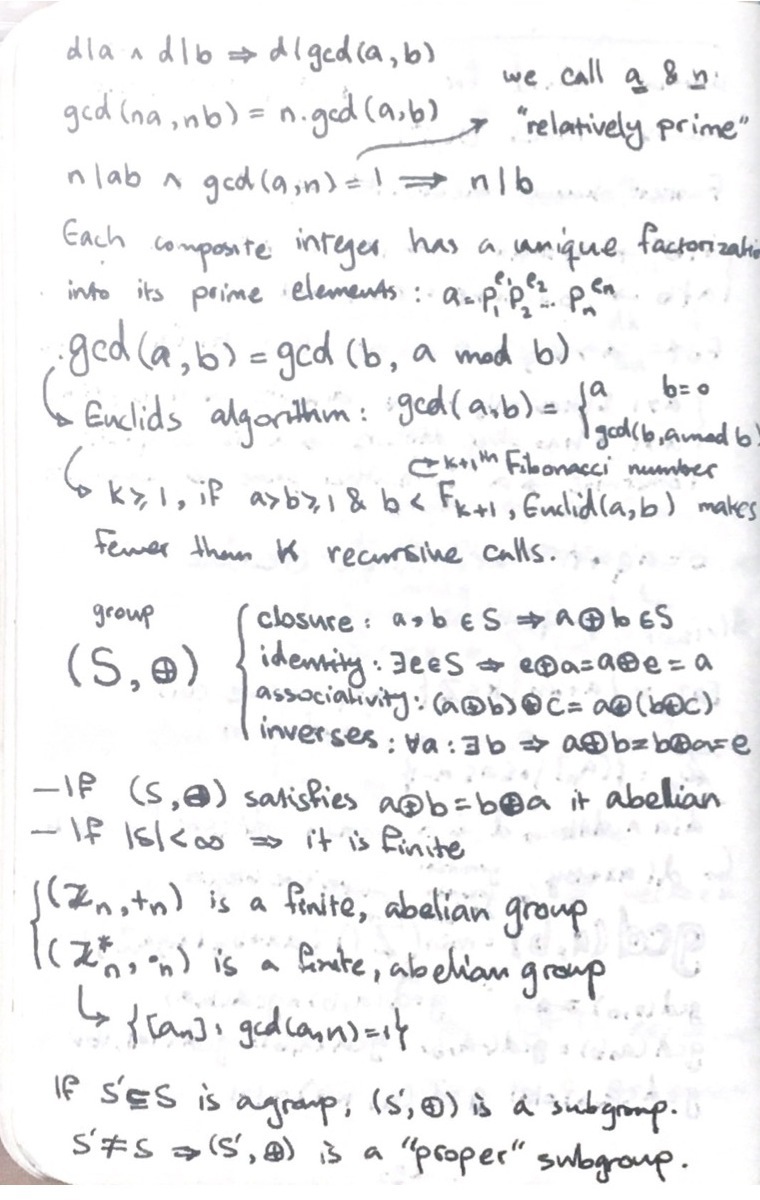 d|a ∧ d|b ⇒ d|gcd(a,b)
we call a & n:
gcd(na,nb) = n.gcd(a,b)
"relatively prime"
n|ab ∧ gcd(a,n)=1 ⇒ n|b
Each composite integer has a unique factorizatio
into its prime elements : a=p₁^e₁ p₂^e₂ ... pₙ^eₙ
gcd(a,b) = gcd(b, a mod b)
Euclids algorithm : gcd(a,b) = { a b=0
gcd(b,a mod b)
k+1th Fibonacci number
k≥1, if a>b≥1 & b < F_{k+1}, Euclid(a,b) makes
fewer than K recursive calls.
group
(S,⊕)
closure : a,b ∈ S ⇒ a⊕b ∈ S
identity : ∃e∈S ⇒ e⊕a=a⊕e = a
associativity : (a⊕b)⊕c = a⊕(b⊕c)
inverses : ∀a : ∃b ⇒ a⊕b=b⊕a=e
- If (S,⊕) satisfies a⊕b=b⊕a it abelian
- If |S|<∞ ⇒ it is finite
(ℤₙ,+ₙ) is a finite, abelian group
(ℤ*ₙ,·ₙ) is a finite, abelian group
{[aₙ] : gcd(a,n)=1}
If S'⊆S is a group, (S',⊕) is a subgroup.
S'≠S ⇒ (S',⊕) is a "proper" subgroup.